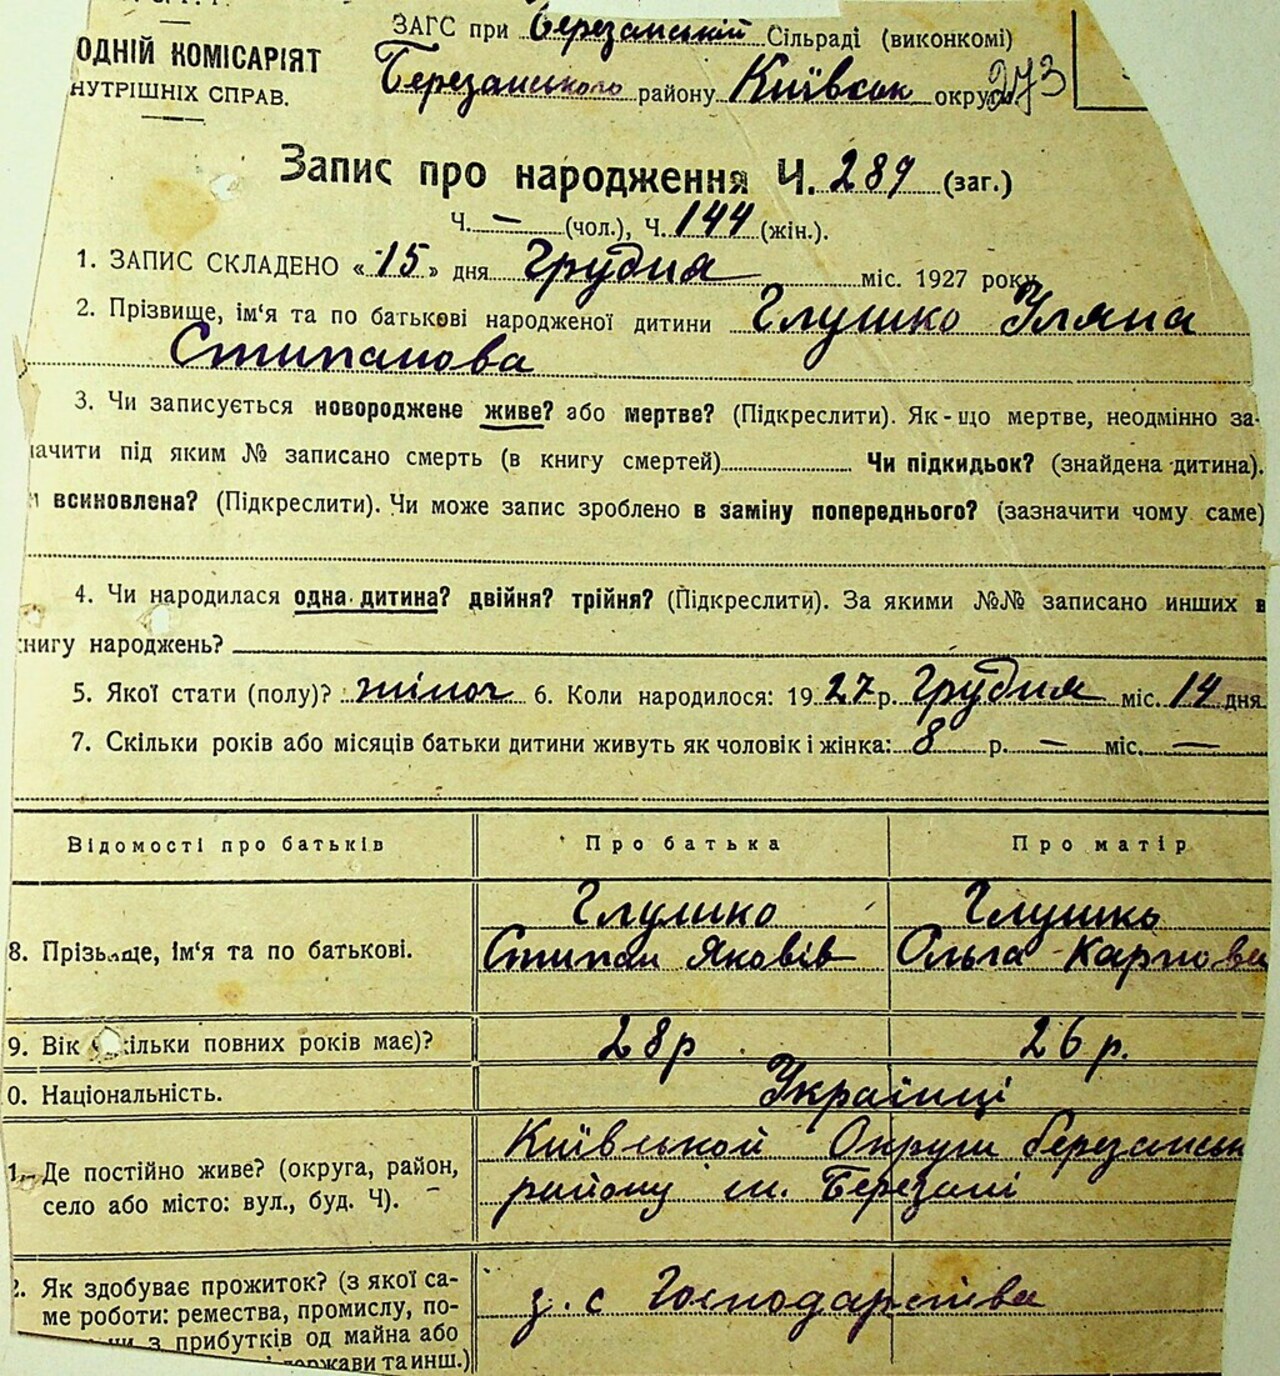 ЗАГС при Березанській Сільраді (виконкомі)
ОДНІЙ КОМІСАРІЯТ
НУТРІШНІХ СПРАВ.
Березанського району Київськ округи 273
Запис про народження Ч. 289 (заг.)
Ч. — (чол.), Ч. 144 (жін.).
1. ЗАПИС СКЛАДЕНО «15» дня Грудня міс. 1927 року
2. Прізвище, ім'я та по батькові народженої дитини Глушко Уляна
Стипанова
3. Чи записується новороджене живе? або мертве? (Підкреслити). Як-що мертве, неодмінно за-
начити під яким № записано смерть (в книгу смертей) Чи підкидьок? (знайдена дитина).
и всиновлена? (Підкреслити). Чи може запис зроблено в заміну попереднього? (зазначити чому саме)
4. Чи народилася одна дитина? двійня? трійня? (Підкреслити). За якими №№ записано инших в
книгу народжень?
5. Якої стати (полу)? жіноч 6. Коли народилося: 1927 р. Грудня міс. 14 дня
7. Скільки років або місяців батьки дитини живуть як чоловік і жінка: 8 р. — міс. —
Відомості про батьків Про батька Про матір
Глушко Глушко
8. Прізвище, ім'я та по батькові. Стипан Яковів Ольга Карпова
9. Вік (скільки повних років має)? 28 р 26 р.
0. Національність. Українці
Київської Округи Березанськ
1. Де постійно живе? (округа, район,
району м. Березані
село або місто: вул., буд. Ч).
2. Як здобуває прожиток? (з якої са-
з. с Господарства
ме роботи: ремества, промислу, по-
чи з прибутків од майна або
держави та инш.)